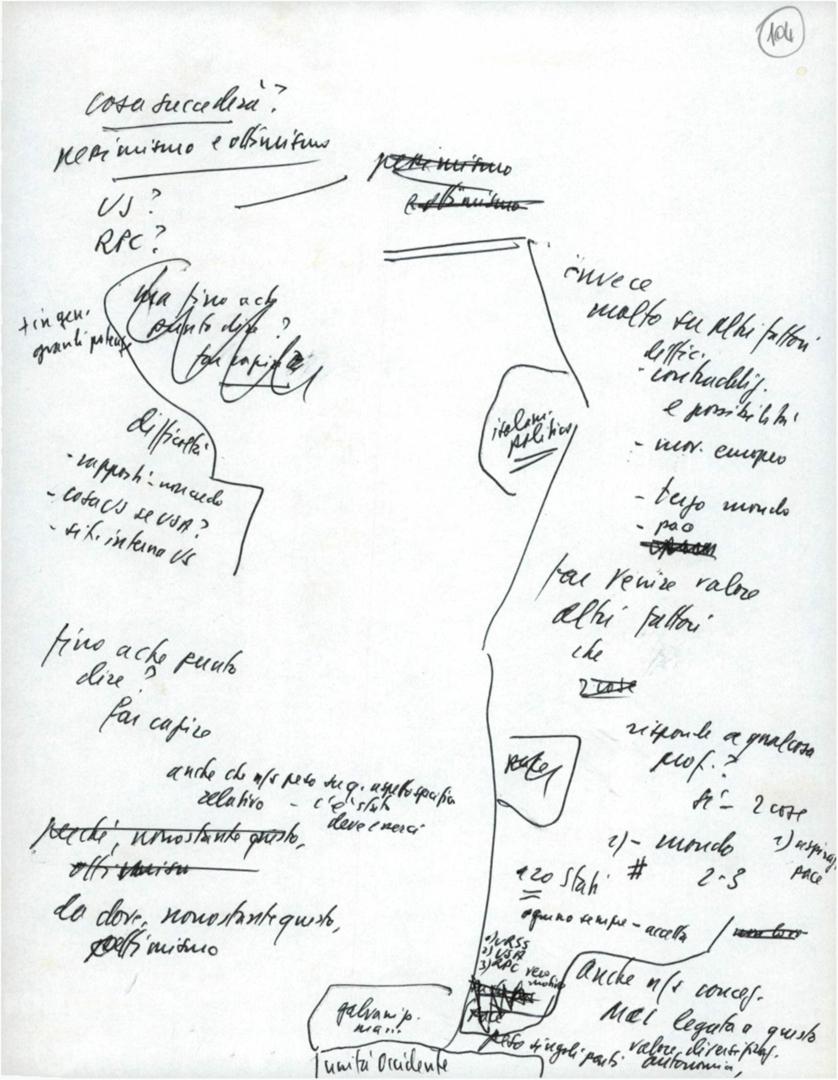 104
cosa succederà?
pessimismo e ottimismo
pessimismo
e ottimismo
US?
RPC?
ma fino a che
punto dire?
far capire
+ in gen.
grandi potenze
difficoltà
- rapporti - mondo
- cosa US se USA?
- sit. interna US
invece
molto su altri fattori
diffic.
- contraddiz.
e possibilità
- mov. europeo
- terzo mondo
- pace
politico
far venire valore
altri fattori
che
2 cose
fino a che punto
dire?
far capire
anche che n/s peso su q. aspetto specifico
relativo - c'è stati
deve esserci
perché, nonostante questo,
ottimismo
da dove, nonostante questo,
ottimismo
risponde a qualcosa
prof.?
sì - 2 cose
2) - mondo
# 2-3
1) aspiraz.
pace
120 stati
ognuno sempre - accetta
1) URSS
2) USA
3) RPC
anche n/s concez.
legata a questo
valore diversificaz.
autonomia,
peso singoli partiti
galvanip.
ma...
unità occidente